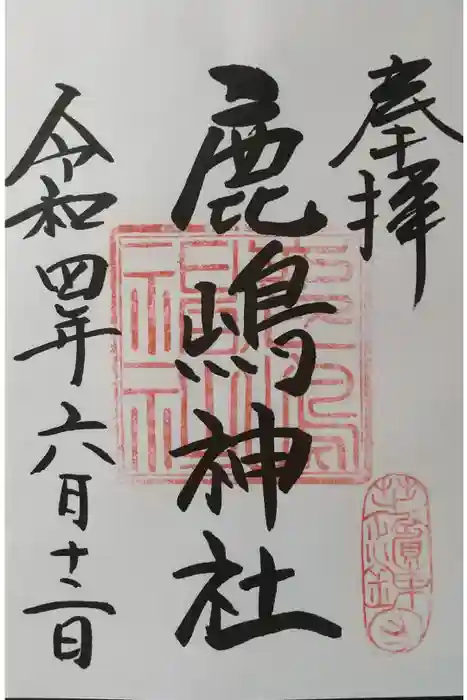 奉拝
鹿嶋神社
令和四年六月十二日